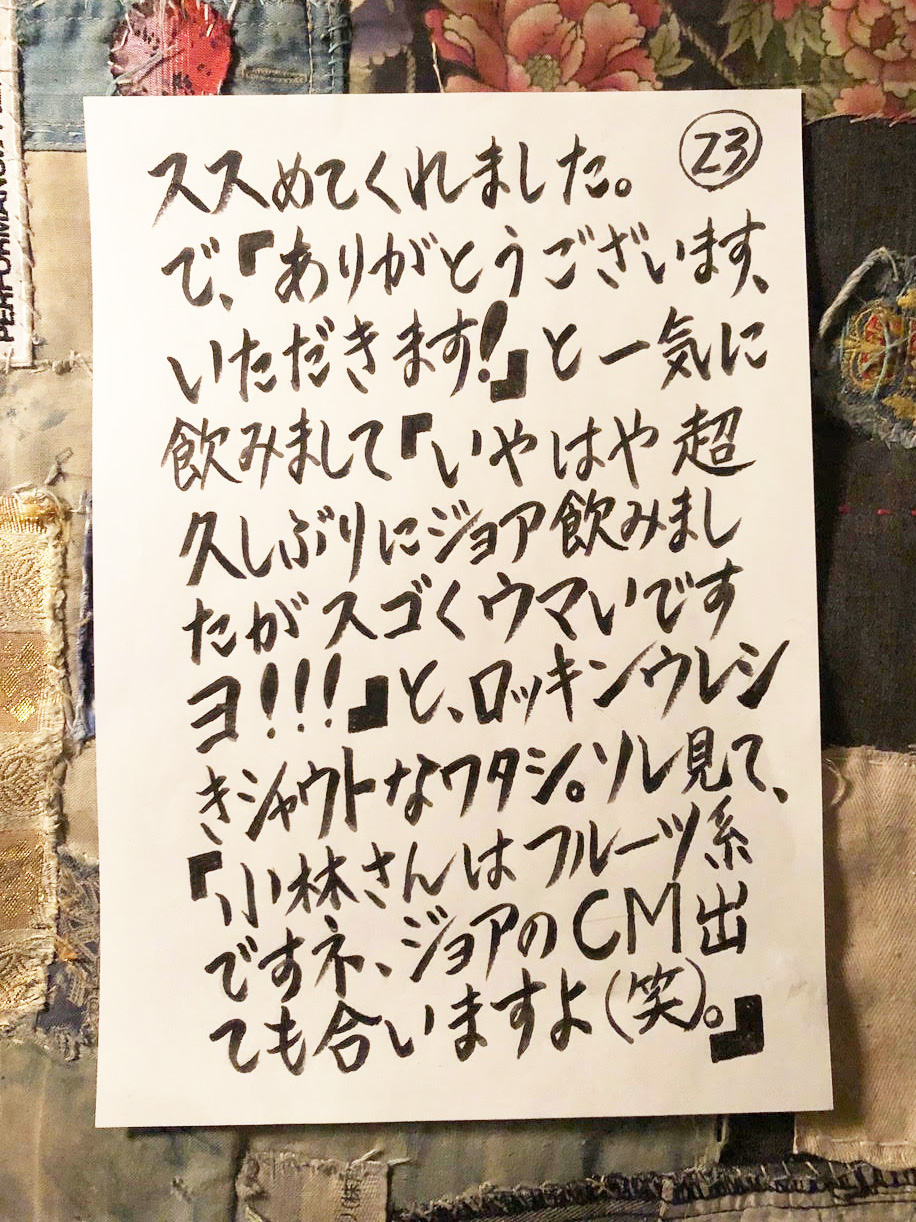 23
ススめてくれました。
で、『ありがとうございます、
いただきます!』と一気に
飲みまして『いやはや超
久しぶりにジョア飲みまし
たがスゴくウマいです
ヨ!!!』と、ロッキンウレシ
きシャウトなワタシ。ソレ見て、
『小林さんはフルーツ系
ですネ、ジョアのCM出
ても合いますよ(笑)。』